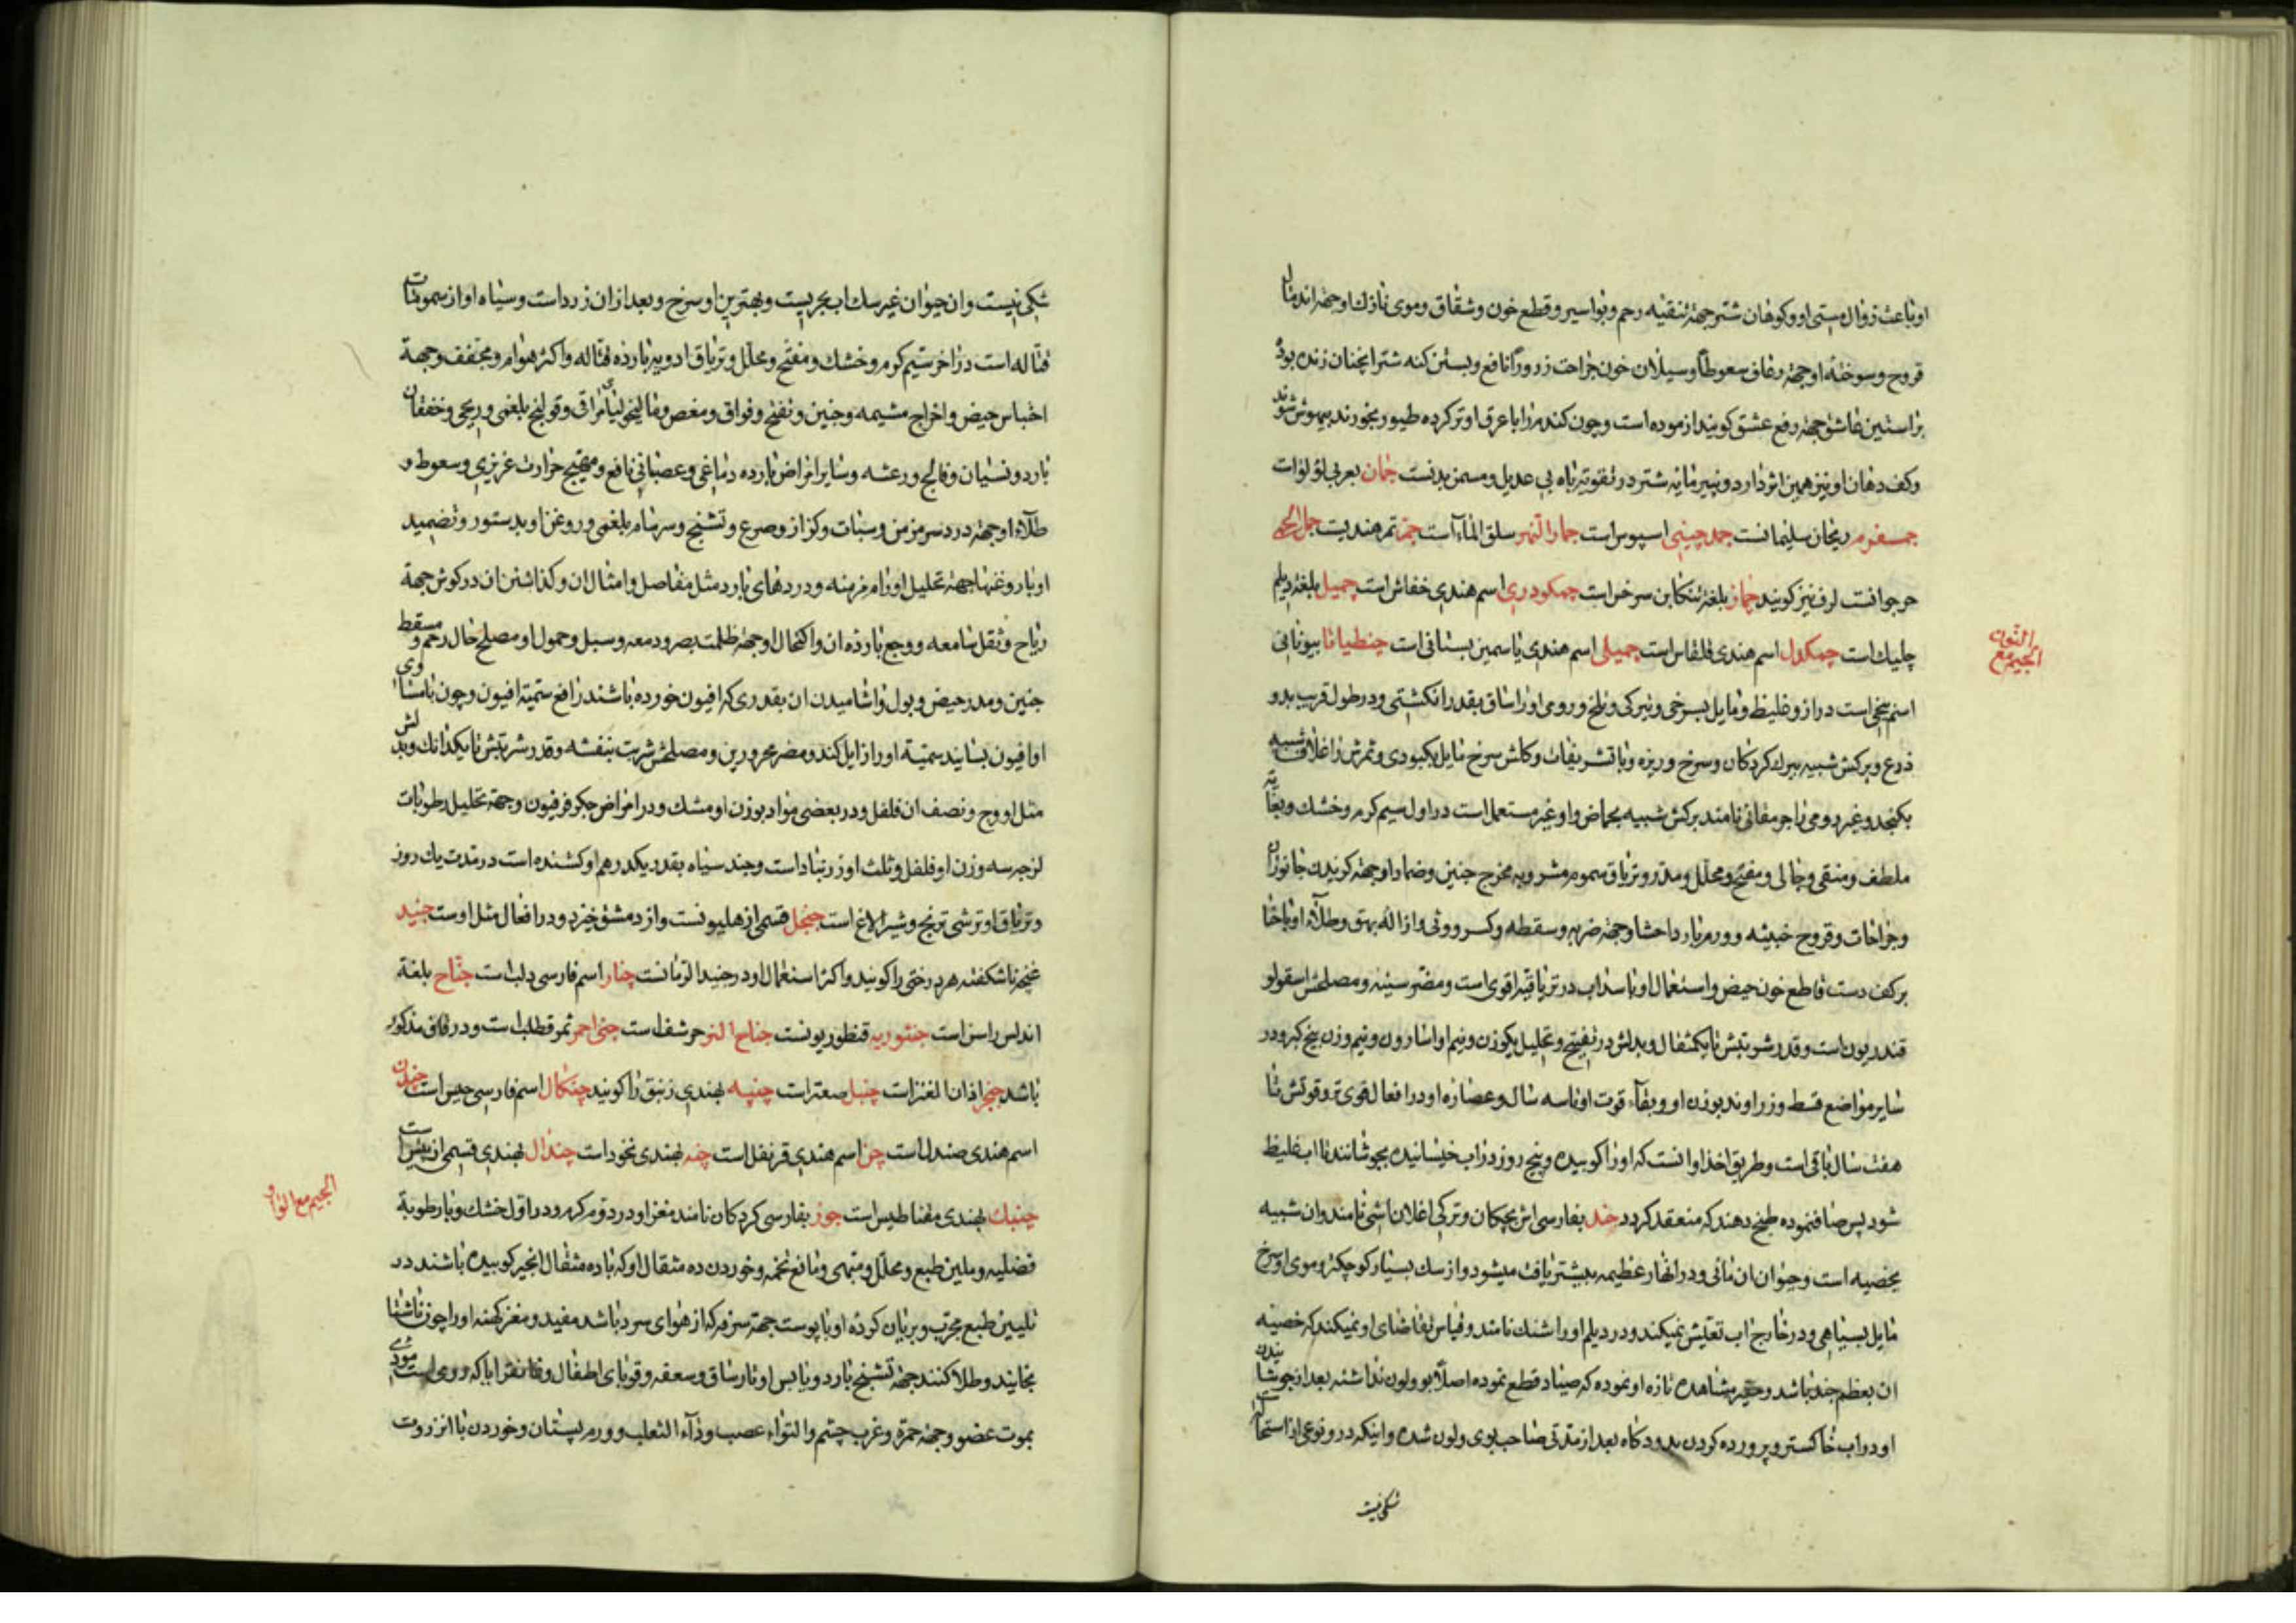 او باعث زوال مستی او و کوهان شتر جهة تنقیه رحم و بواسیر و قطع خون و شقاق و موی نازك او جهة اندمال
قروح و سوختهٔ او جهة رعاف سعوطاً و سیلان خون جراحت ذروراً نافع و بستن کنه شتر انچنان زنده بود
بر استین عاشق جهة رفع عشق کویند ازموده است و چون کندم را با عرق او تر کرده طیور بخورند بیهوش شوند
و کف دهان او نیز همین اثر دارد و پنیر مایه شتر در تقویة باه بی عدیل و مسمن بدنست جمان بعربی لؤلؤات
جمسفرم ریحان سلیمانست جمد چینی اسیوس است جمار النهر سلق الماء است جمر تمر هندیست
حرجوانست لرف نیز کویند جماز بلغة تنکابن سرخس است جمکودری اسم هندی خفاش است جمیل بلغة دیلم
چلیك است چمکدل اسم هندی قلقاس است جمیلی اسم هندی یاسمین بستانی است جنطیانا بیونانی
الجیم مع النون
اسم بیخی است دراز و غلیظ و مایل بسرخی و تیرکی و تلخ و رومی او را ساق بقدر انکشتی و در طول قریب بدو
ذرع و برکش شبیه ببرك کردکان و سرخ و ریزه و با تشریفات و کلش سرخ مایل بکبودی و ثمرش در غلاف شبیه
بکنجد و غیر رومی را جرمقانی نامند برکش شبیه بحماض و او غیر مستعمل است در اول سیم کرم و خشك و بغایة
ملطف و منقی و جالی و مفتح و محلل و مدر و تریاق سموم مشروبه و مخرج جنین و ضماد او جهة کزیدن جانوران
و جراحات و قروح خبیثه و ورم بارد احشا و جهة ضربه و سقطه و کسر و وثی و ازالهٔ بهق و طلاء او با حنا
بر کف دست قاطع خون حیض و استعمال او با سداب در تریاقیة اقوی است و مضر سینه و مصلحش اسقولو
قندریون است و قدر شربتش تا یکمثقال و بدلش در تفتیح و تحلیل بکوزن و نیم او اسارون و نیم وزن بیخ کبر و در
سایر مواضع قسط و زراوند بوزن او و بقاء قوت او تا سه سال و عصارهٔ او در افعال قوی تر و قوتش تا
هفت سال باقی است و طریق اخذ او انست که او را کوبیده و پنج روز در اب خیسانیده بجوشانند تا اب غلیظ
شود پس صاف نموده طبخ دهند که منعقد کردد جند بفارسی اش بچکان و ترکی اغلان اشی نامند و ان شبیه
بخصیه است و حیوان ان مائی و در انهار عظیمه بیشتر یافت میشود و از سك بسیار کوچکتر و موی او سرخ
مایل بسیاهی و در خارج اب تعیش نمیکند و در دیلم او را شنك نامند و قیاس تقاضای او نمیکند که خصیه
ان بعظم جند باشد و حقیر مشاهده تازه او نموده که صیاد قطع نموده اصلاً بو و لون نداشته بعد از جوشانیدن
او در اب خاکستر و پرورده کردن بدود کاه بعد از مدتی صاحب بوی و لون شده و اینکه در و نوعی از استحاله
شکی نیست
شکی نیست و ان حیوان غیر سك اب بحریست و بهترین او سرخ و بعد از ان زرد است و سیاه او از سمومات
قتاله است در اخر سیم کرم و خشك و مفتح و محلل و تریاق ادویهٔ باردهٔ قتاله و اکثر هوام و مجفف و جهة
احتباس حیض و اخراج مشیمه و جنین و نفخ و فواق و مغص و مالیخولیای مراقی و قولنج بلغمی و ریحی و خفقان
بارد و نسیان و فالج و رعشه و سایر امراض باردهٔ دماغی و عصبانی نافع و مهیج حرارت غریزی و سعوط و
طلاء او جهة درد سر مزمن و سبات و کزاز و صرع و تشنج و سرسام بلغمی و روغن او بدستور و تضمید
او با روغنها جهة تحلیل اورام مزمنه و دردهای بارد مثل مفاصل و امثال ان و کذاشتن ان در کوش جهة
ریاح و ثقل سامعه و وجع باردهٔ ان و اکتحال او جهة ظلمت بصر و دمعه و سبل و حمول او مصلح حال رحم و مسقط
جنین و مدر حیض و بول و اشامیدن ان بقدری که افیون خورده باشند رافع سمیة افیون و چون با مساوی
او افیون بسایند سمیة او را زایل کند و مضر محرورین و مصلحش شربت بنفشه و قدر شربتش تا یکدانك و بدلش
مثل او وج و نصف ان فلفل و در بعضی مواد بوزن او مشك و در امراض جکر فرفیون و جهة تحلیل رطوبات
لزجه سه وزن او فلفل و ثلث او زرنباد است و جند سیاه بقدر یکدرهم او کشنده است در مدت یك روز
و تریاق او ترشی ترنج و شیر الاغ است جنجل قسمی از هلیونست و از دمشق خیزد و در افعال مثل اوست جنبد
غنچهٔ ناشکفته هر درختی را کویند و اکثر استعمال او در جنبد الرمانست چنار اسم فارسی دلب است جناح بلغة
اندلس راسن است جنتوریه قنطوریونست جناح النسر حرشف است جنی احمر ثمر قطلب است و در قاف مذکور
باشد جنجر اذان العنز است چنبل صعتر است چنپه بهندی زنبق را کویند چنکال اسم فارسی حیس است چندن
اسم هندی صندل است چن اسم هندی قرنفل است چنه بهندی نخود است چندال بهندی قسمی از بیش است
چنبك بهندی مقناطیس است جوز بفارسی کردکان نامند مغز او در دوم کرم و در اول خشك و با رطوبة
الجیم مع الواو
فضلیه و ملین طبع و محلل و مبهی و مانع تخمه و خوردن ده مثقال او که با ده مثقال انجیر کوبیده باشند در
تلیین طبع مجرب و بریان کردهٔ او با پوست جهة سرفه که از هوای سرد باشد مفید و مغز کهنه او را چون ناشتا
بخایند و طلا کنند جهة تشنج بارد و یابس اوتار ساق و سعفه و قوبای اطفال و غانغرایا که ورمی است مودی
بموت عضو و جهة جمره و غرب چشم و التواء عصب و داء الثعلب و ورم پستان و خوردن با انزروت